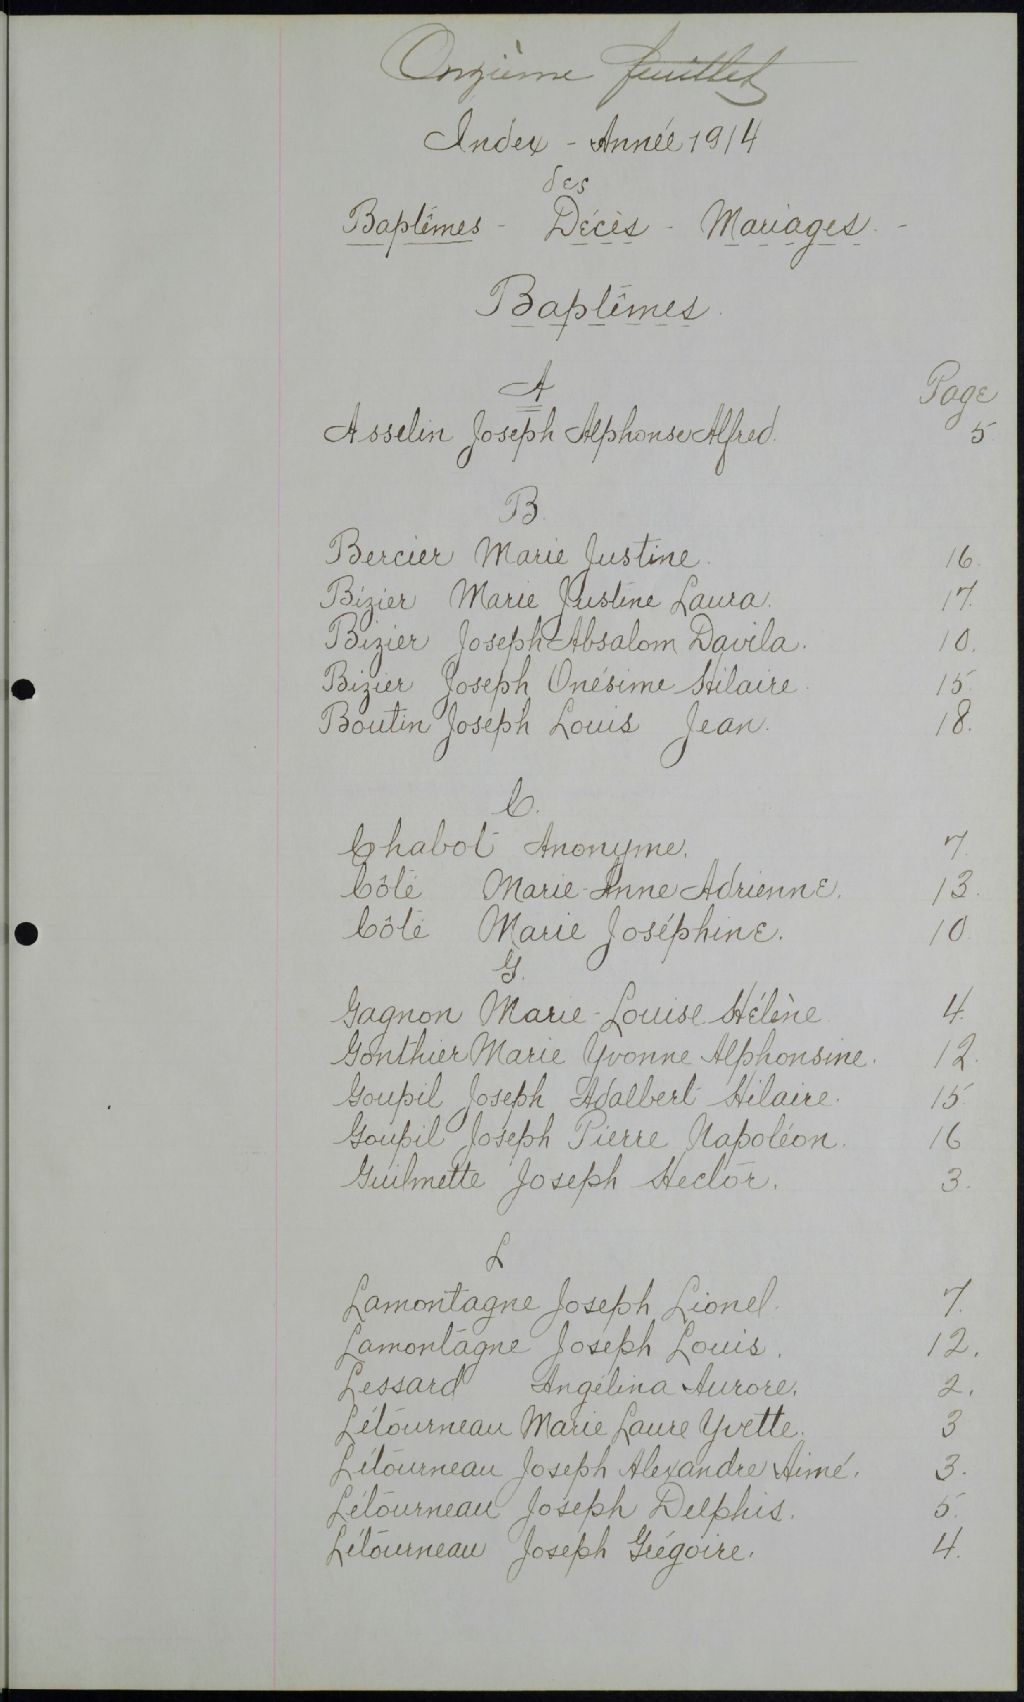 Onzième feuillet
Index - Année 1914
des
Baptêmes - Décès - Mariages. -
Baptêmes.
A
Page
Asselin Joseph Alphonse Alfred. 5.
B
Bercier Marie Justine. 16.
Bizier Marie Justine Laura. 17.
Bizier Joseph Absalom Davila. 10.
Bizier Joseph Onésime Hilaire. 15.
Boutin Joseph Louis Jean. 18.
C.
Chabot Anonyme. 7.
Côté Marie-Anne Adrienne. 13.
Côté Marie Joséphine. 10.
G.
Gagnon Marie-Louise Hélène 4.
Gonthier Marie Yvonne Alphonsine. 12.
Goupil Joseph Adalbert Hilaire. 15
Goupil Joseph Pierre Napoléon. 16
Guilmette Joseph Hector. 3.
L
Lamontagne Joseph Lionel. 7.
Lamontagne Joseph Louis. 12.
Lessard Angélina Aurore. 2.
Létourneau Marie Laure Yvette. 3
Létourneau Joseph Alexandre Aimé. 3.
Létourneau Joseph Delphis. 5.
Létourneau Joseph Grégoire. 4.